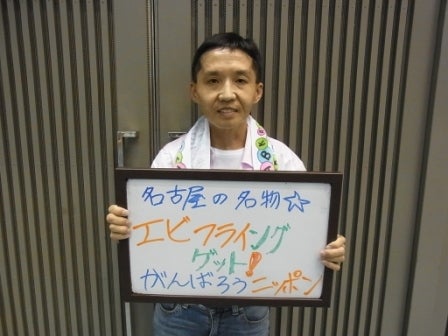 名古屋の名物☆
エビフライング
ゲット!
がんばろうニッポン